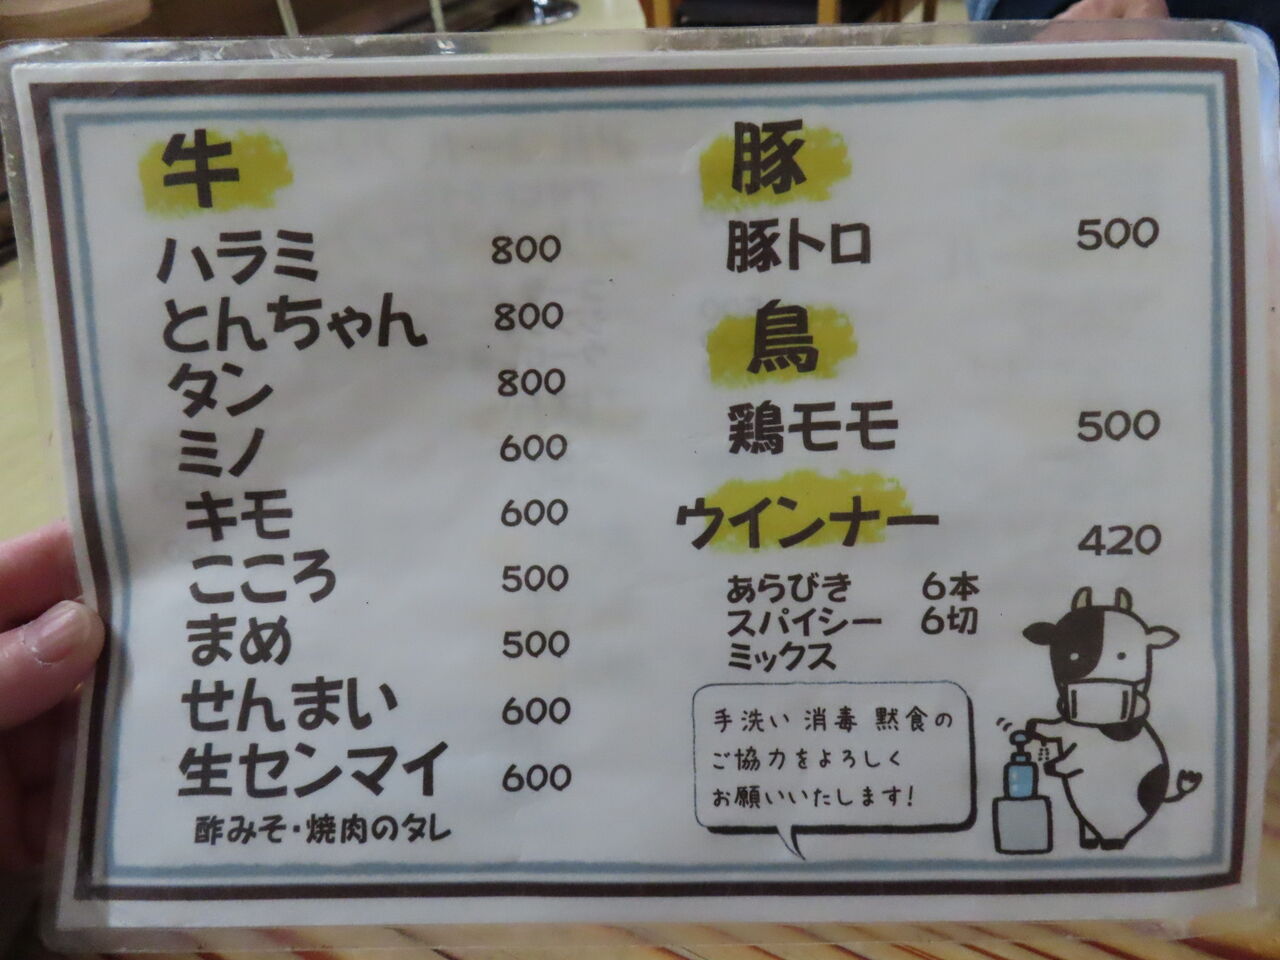 牛
ハラミ 800
とんちゃん 800
タン 800
ミノ 600
キモ 600
こころ 500
まめ 500
せんまい 600
生センマイ 600
酢みそ・焼肉のタレ
豚
豚トロ 500
鳥
鶏モモ 500
ウインナー 420
あらびき 6本
スパイシー 6切
ミックス
手洗い 消毒 黙食の
ご協力をよろしく
お願いいたします!